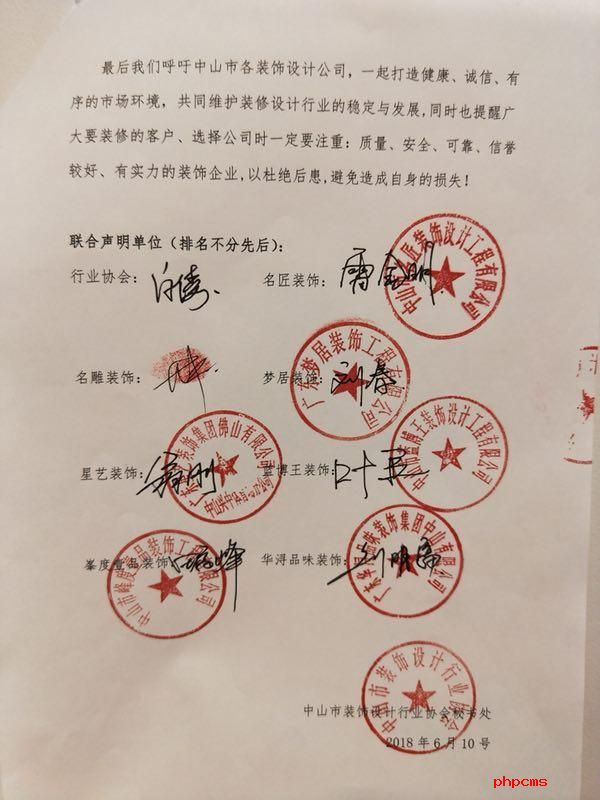 最后我们呼吁中山市各装饰设计公司，一起打造健康、诚信、有
序的市场环境，共同维护装修设计行业的稳定与发展,同时也提醒广
大要装修的客户、选择公司时一定要注重：质量、安全、可靠、信誉
较好、有实力的装饰企业,以杜绝后患,避免造成自身的损失！
联合声明单位（排名不分先后）：
行业协会：
名匠装饰：
中山 匠装饰设计工程有限公司
名雕装饰：
梦居装饰：
广东梦居装饰工程有限公司
星艺装饰：
装饰集团佛山有限公司
蓝博王装饰：
中山市蓝博王装饰设计工程有限公司
峯度壹品装饰
中山市峰度壹品装饰工 有限公司
华浔品味装饰：
广东华浔品味装饰集团中山有限公司
中山市装饰设计行业协会
中山市装饰设计行业协会秘书处
2018年6月10号
phpcms